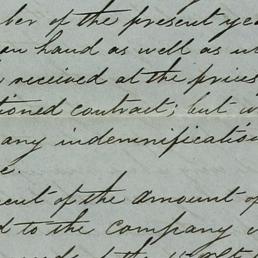 ber of the present ye
on hand as well as
received at the prices
tioned contract; but
any indemnification
e.
ment of the amount of
d to the company